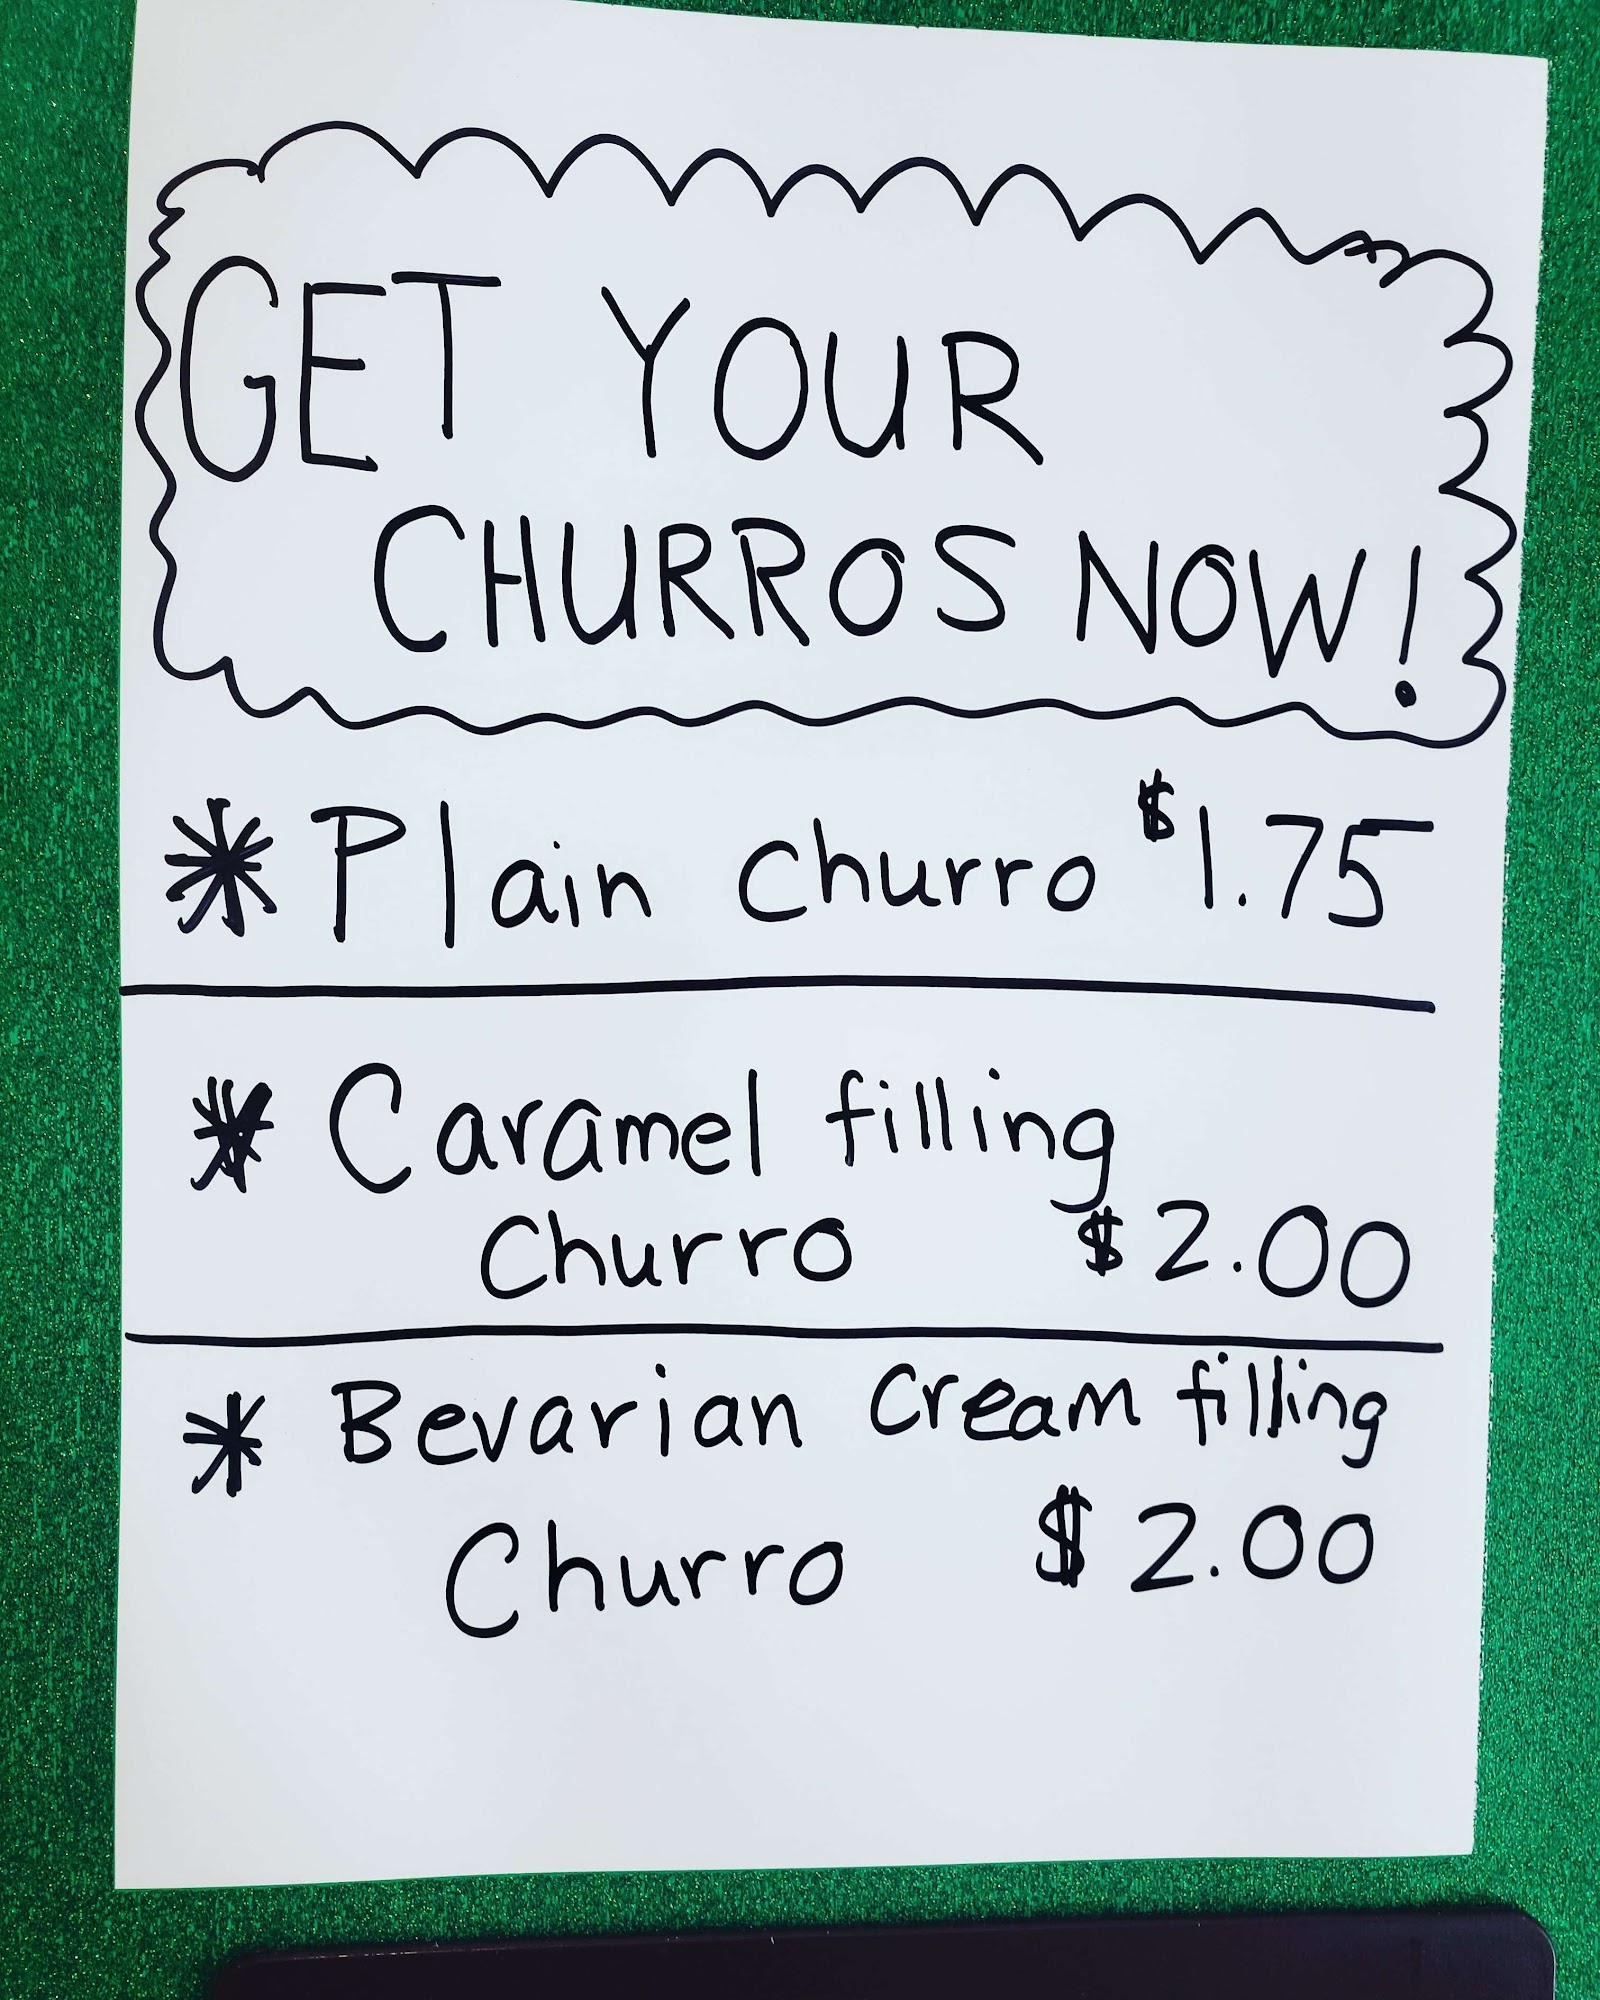 GET YOUR
CHURROS NOW!
* Plain churro $1.75
* Caramel filling
churro $2.00
* Bevarian cream filling
Churro $2.00